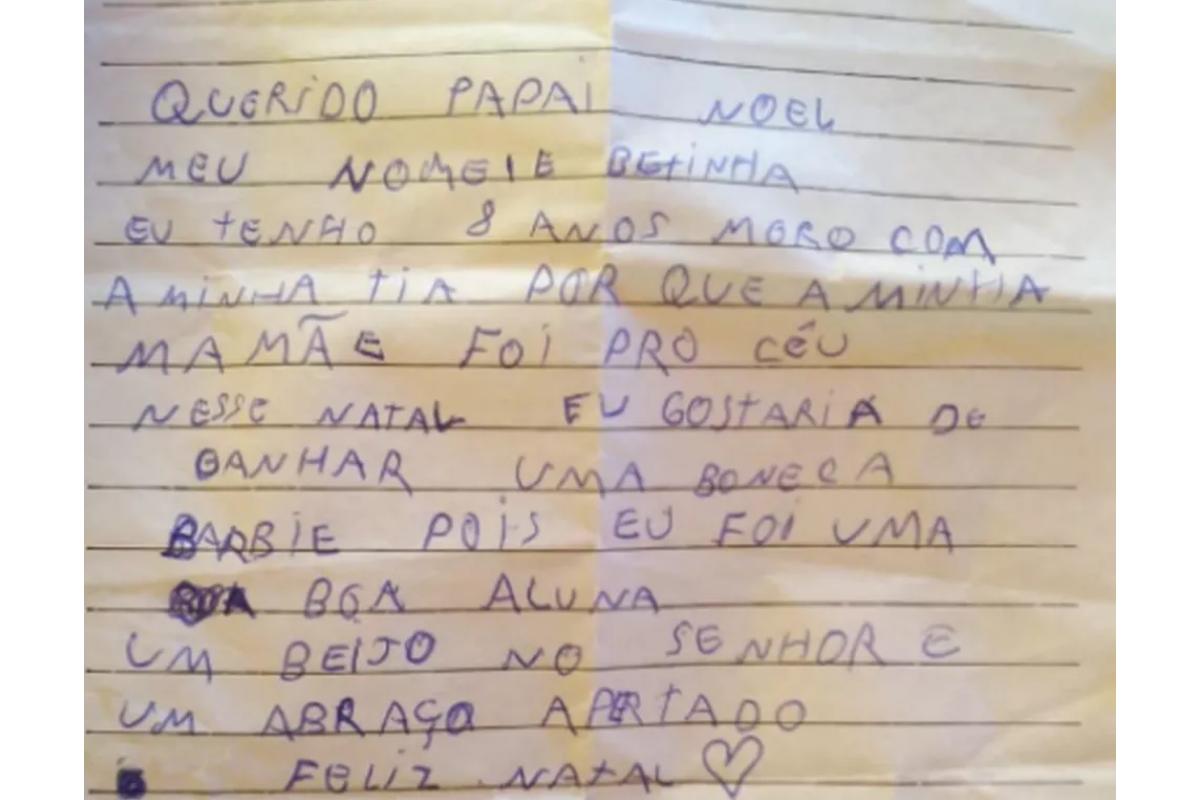 QUERIDO PAPAI NOEL
MEU NOME IE BETINHA
EU TENHO 8 ANOS MORO COM
A MINHA TIA POR QUE A MINHA
MAMÃE FOI PRO CÉU
NESSE NATAL EU GOSTARIA DE
GANHAR UMA BONECA
BARBIE POIS EU FOI UMA
BOA ALUNA
UM BEIJO NO SENHOR E
UM ABRAÇO APERTADO
FELIZ NATAL